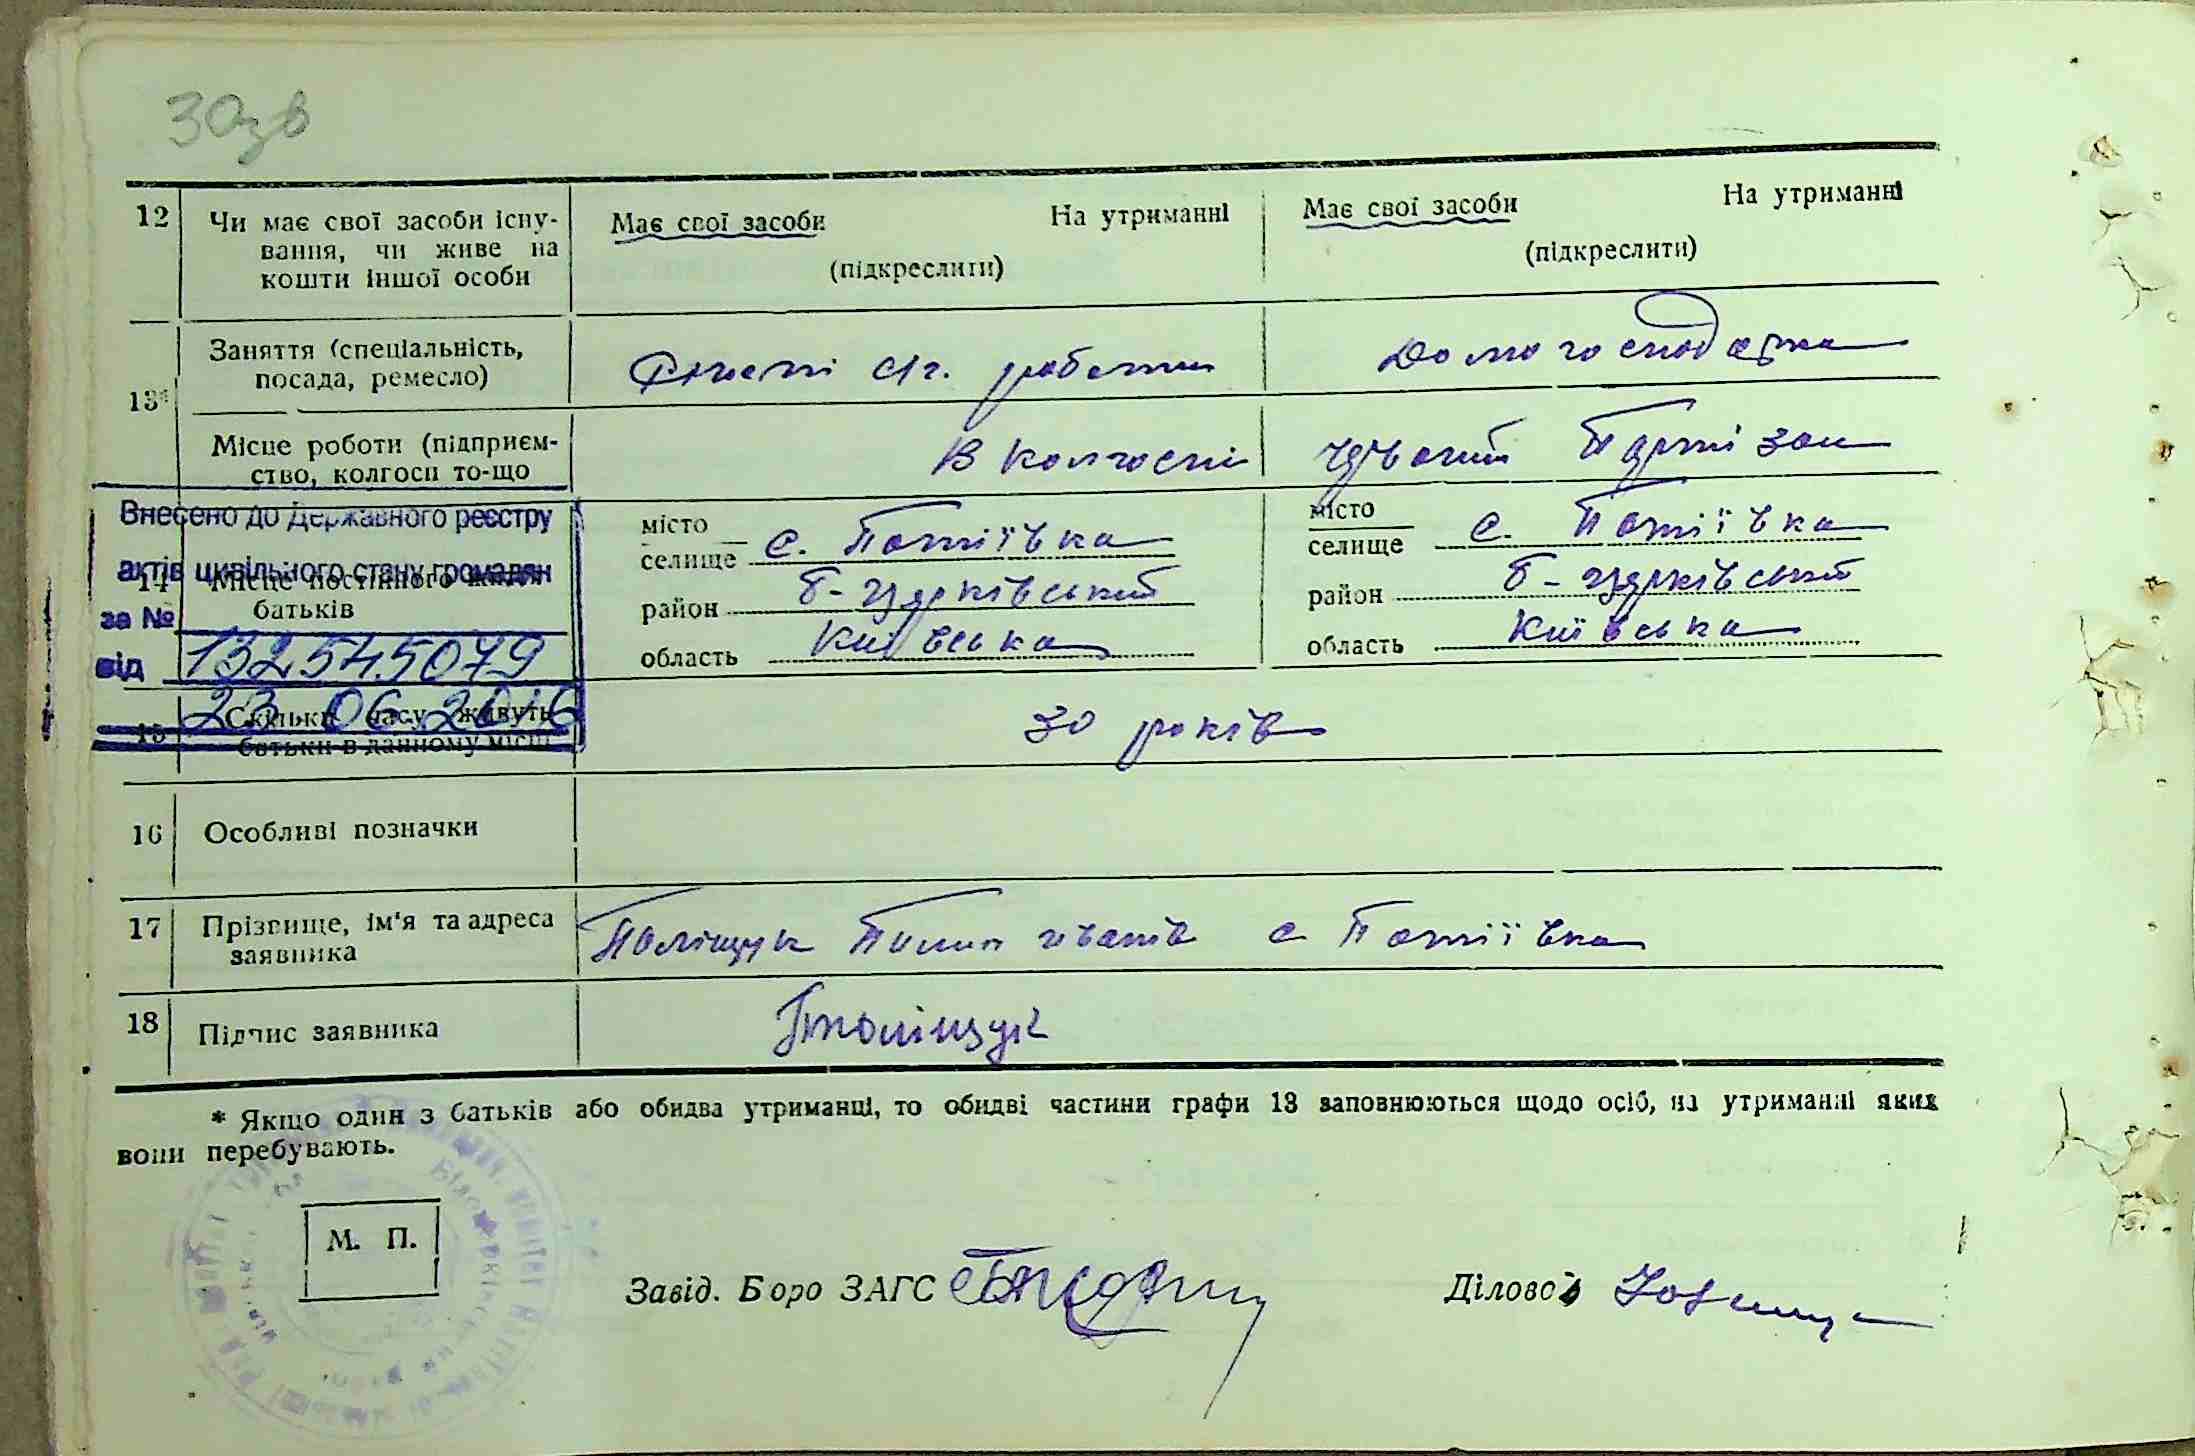 30зв
12 Чи має свої засоби існу- Має свої засоби На утриманні Має свої засоби На утриманні
вання, чи живе на
кошти іншої особи (підкреслити) (підкреслити)
13* Заняття (спеціальність, с/г. роботи Домогосподарка
посада, ремесло)
Місце роботи (підприєм- В колгоспі Червоний Партізан
ство, колгосп то-що
Внесено до Державного реєстру
актів цивільного стану громадян
за № 132545079
від 23.06.2016
14 Місце постійного життя
батьків
місто
селище с. Потіївка
район Б-Церківський
область Київська
місто
селище с. Потіївка
район Б-Церківський
область Київська
15 Скільки часу живуть 30 років
батьки в данному місці
16 Особливі позначки
17 Прізвище, ім'я та адреса Поліщук с Потіївка
заявника
18 Підпис заявника Поліщук
* Якщо один з батьків або обидва утриманці, то обидві частини графи 13 заповнюються щодо осіб, на утриманні яких
вони перебувають.
М. П.
Завід. Бюро ЗАГС Діловод